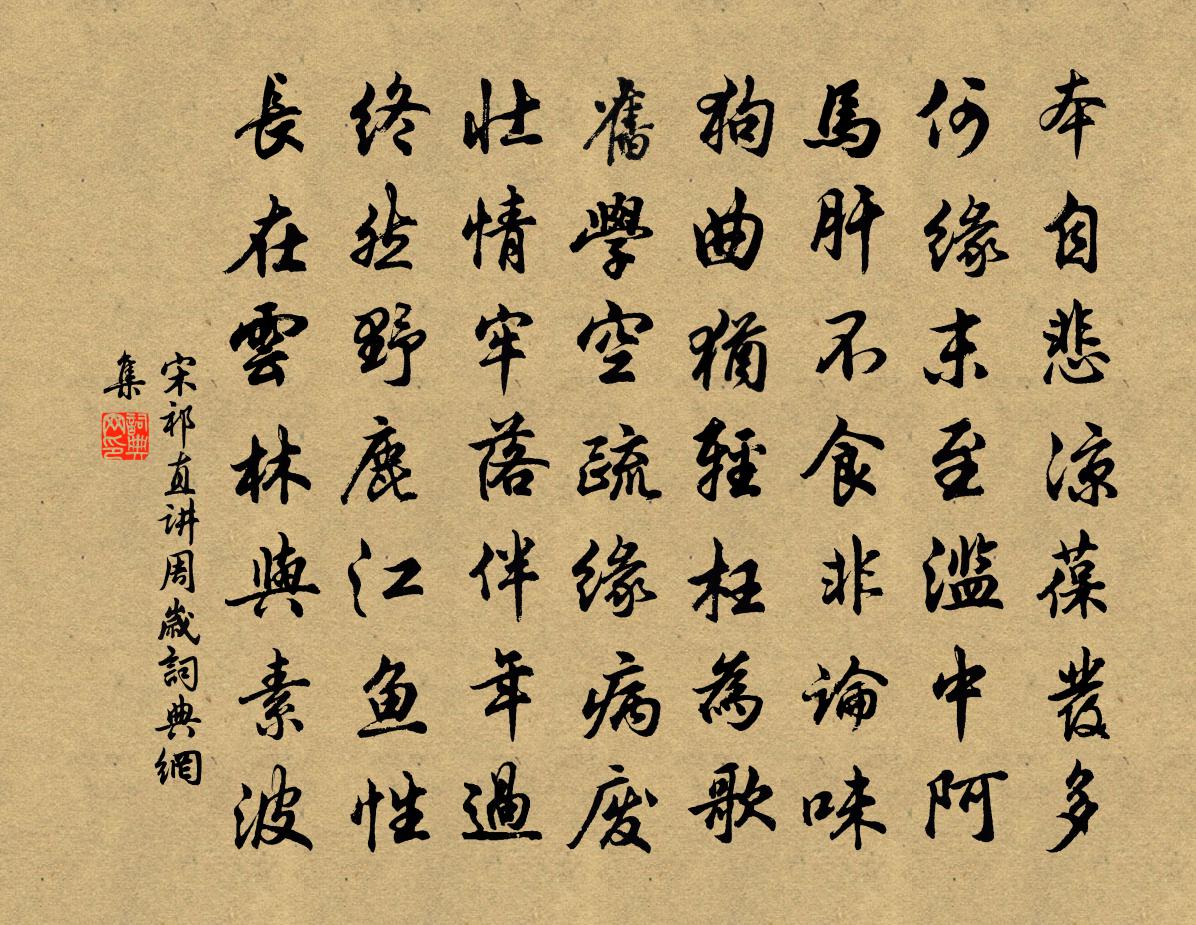 本自悲涼葆發多
何緣末至濫中阿
馬肝不食非論味
狗曲猶輕枉為歌
舊學空疏緣病废
壮情牢落伴年過
终然野鹿江鱼性
長在雲林與素波
宋祁直讲周歲詞典網
集
詞典網印